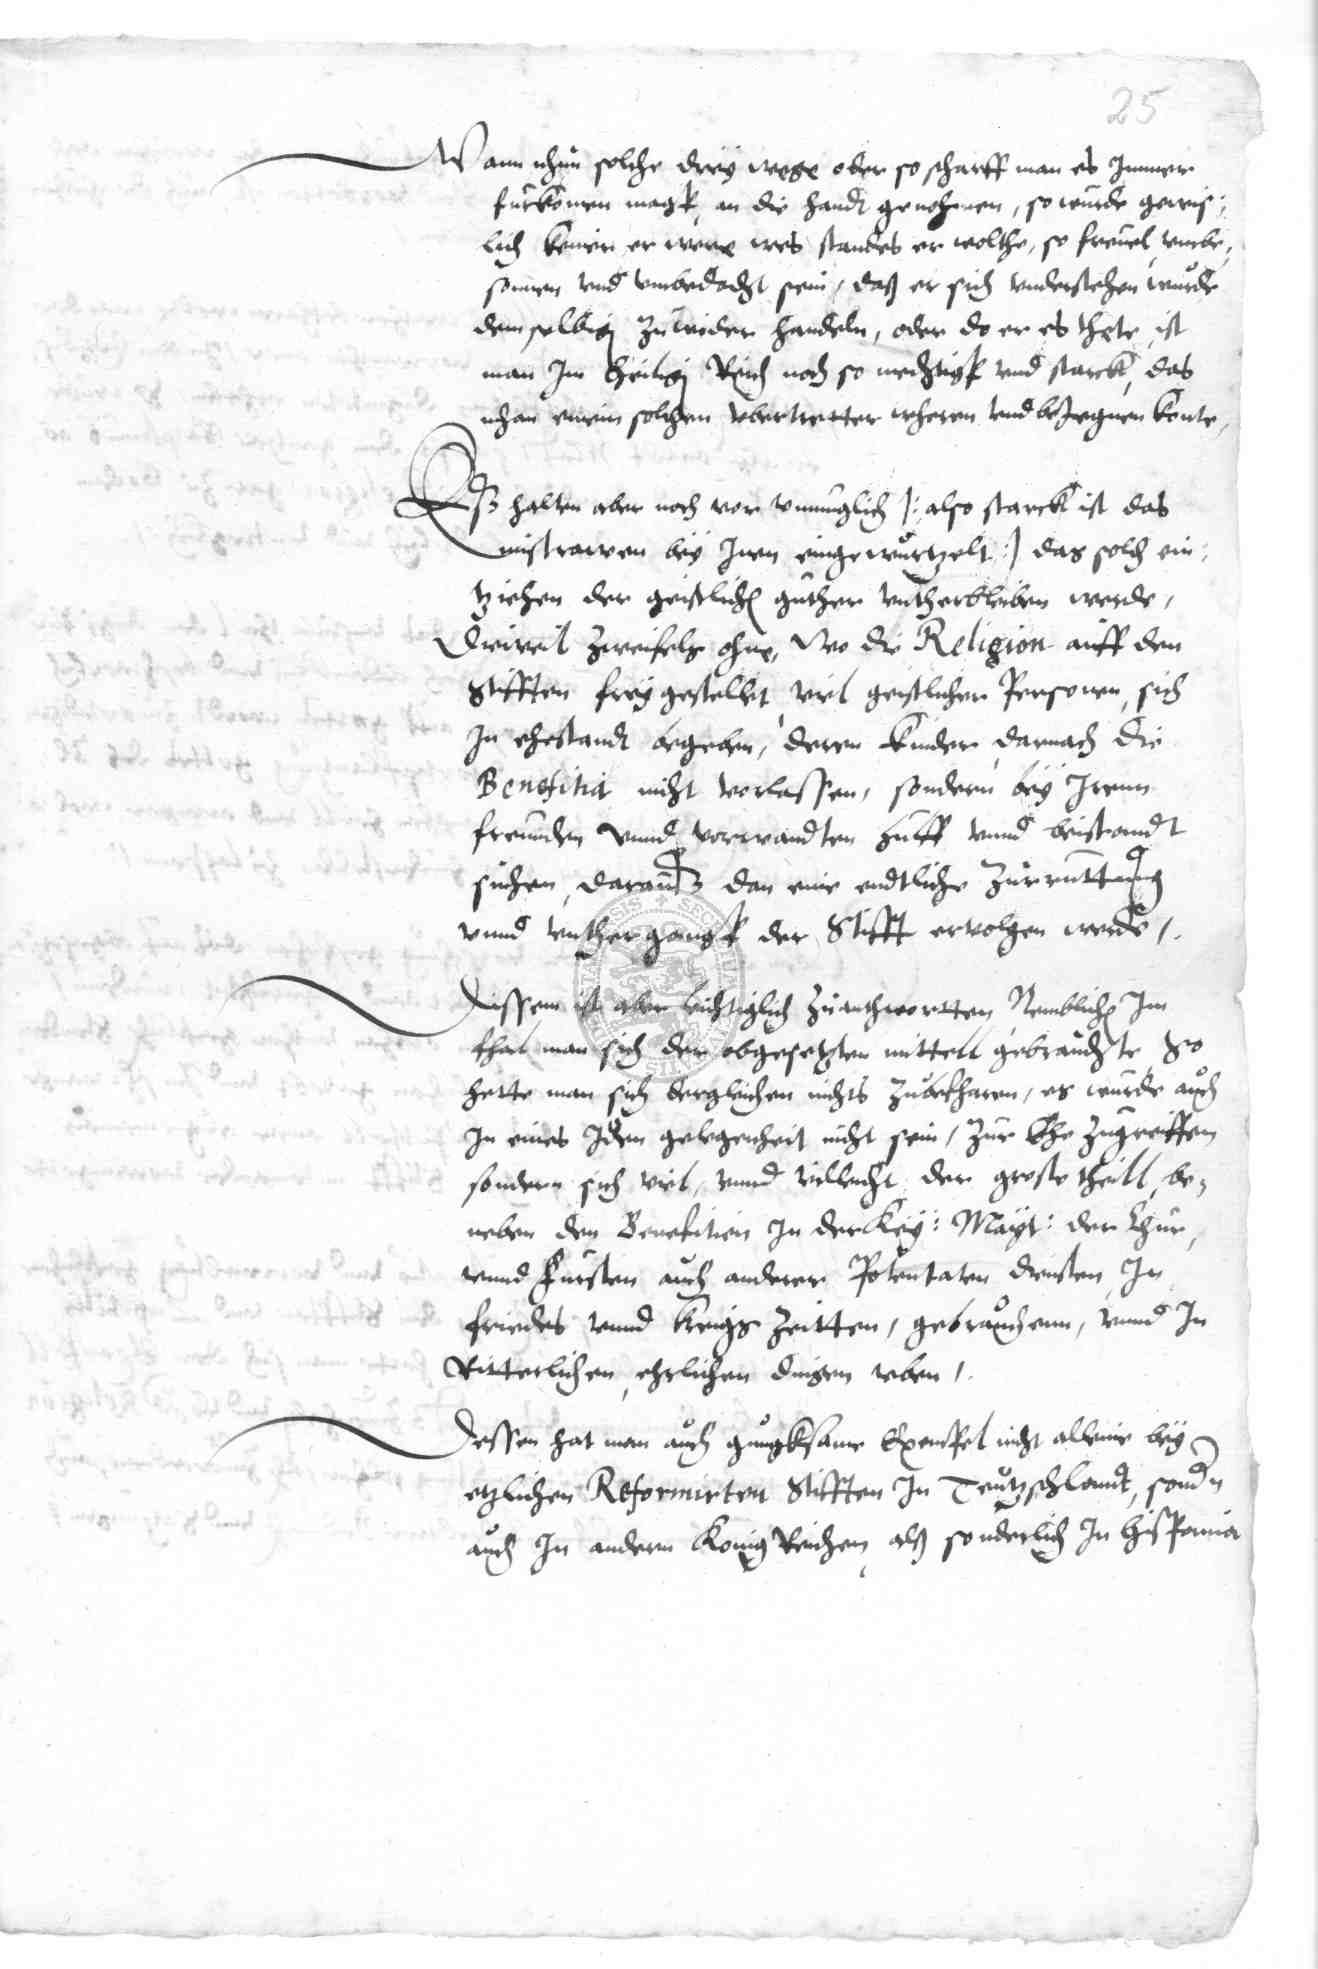 25
Wann nhun solche drey wege oder so scharff man es Immer
furkomen magk, an die handt genohmen, so wurde gewis:
lich keiner er were wes standes er wolthe, so freuel, vnbe,
sonnen vnd vnbedacht sein, daß er sich vnderstehen wurde
demselbigen zuwider handeln, oder do er es thete, ist
man Im heiligen Reich noch so mechtigk vnd starck, das
mhan einem solchen vbertretter wheren vnd bejegnen konte,
Eß halten aber noch vor vnmuglich /: also starck ist das
mistrawen bey Inen eingewurtzelt :/ das solch ein:
tziehen der geistlichen guther vntherbleiben werde,
Dieweil zweifels ohne, Wo die Religion auff den
Stifften frey gestellet, viel geistlicher Personen, sich
In ehestandt begeben, deren kinder darnach die
Benefitia nicht verlassen, sondern bey Irenn
freunden vnnd verwandten hulff vnnd beistandt
suchen, darauß dan eine endtliche zurruttung
vnnd vnthergangk der Stifft ervolgen werde,.
Dissem ist aber leichtiglich zuanthwortten Nemblichen Im
fhal man sich der obgesetzten mittell gebrauchte So
hette man sich dergleichen nichts zubefharen, es wurde auch
In eines Iden gelegenheit nicht sein, zur Ehe zugreiffen
sondern sich viel, vnnd villeicht der groste theill, be,
neben den Benefitien In der Key: Mayt: der Chur,
vnnd Fursten auch anderer Potentaten diensten, In
friedes vnnd kriegs Zeitten, gebrauchenn, vnnd In
Ritterlichen, ehrlichen dingen vben,.
Dessen hat man auch gnugksame Exempel nicht alleine bey
etzlichen Reformirten Stifften In Teutzschlandt, sondern
auch In andern KonigReichen, alß sonderlich In Hispania